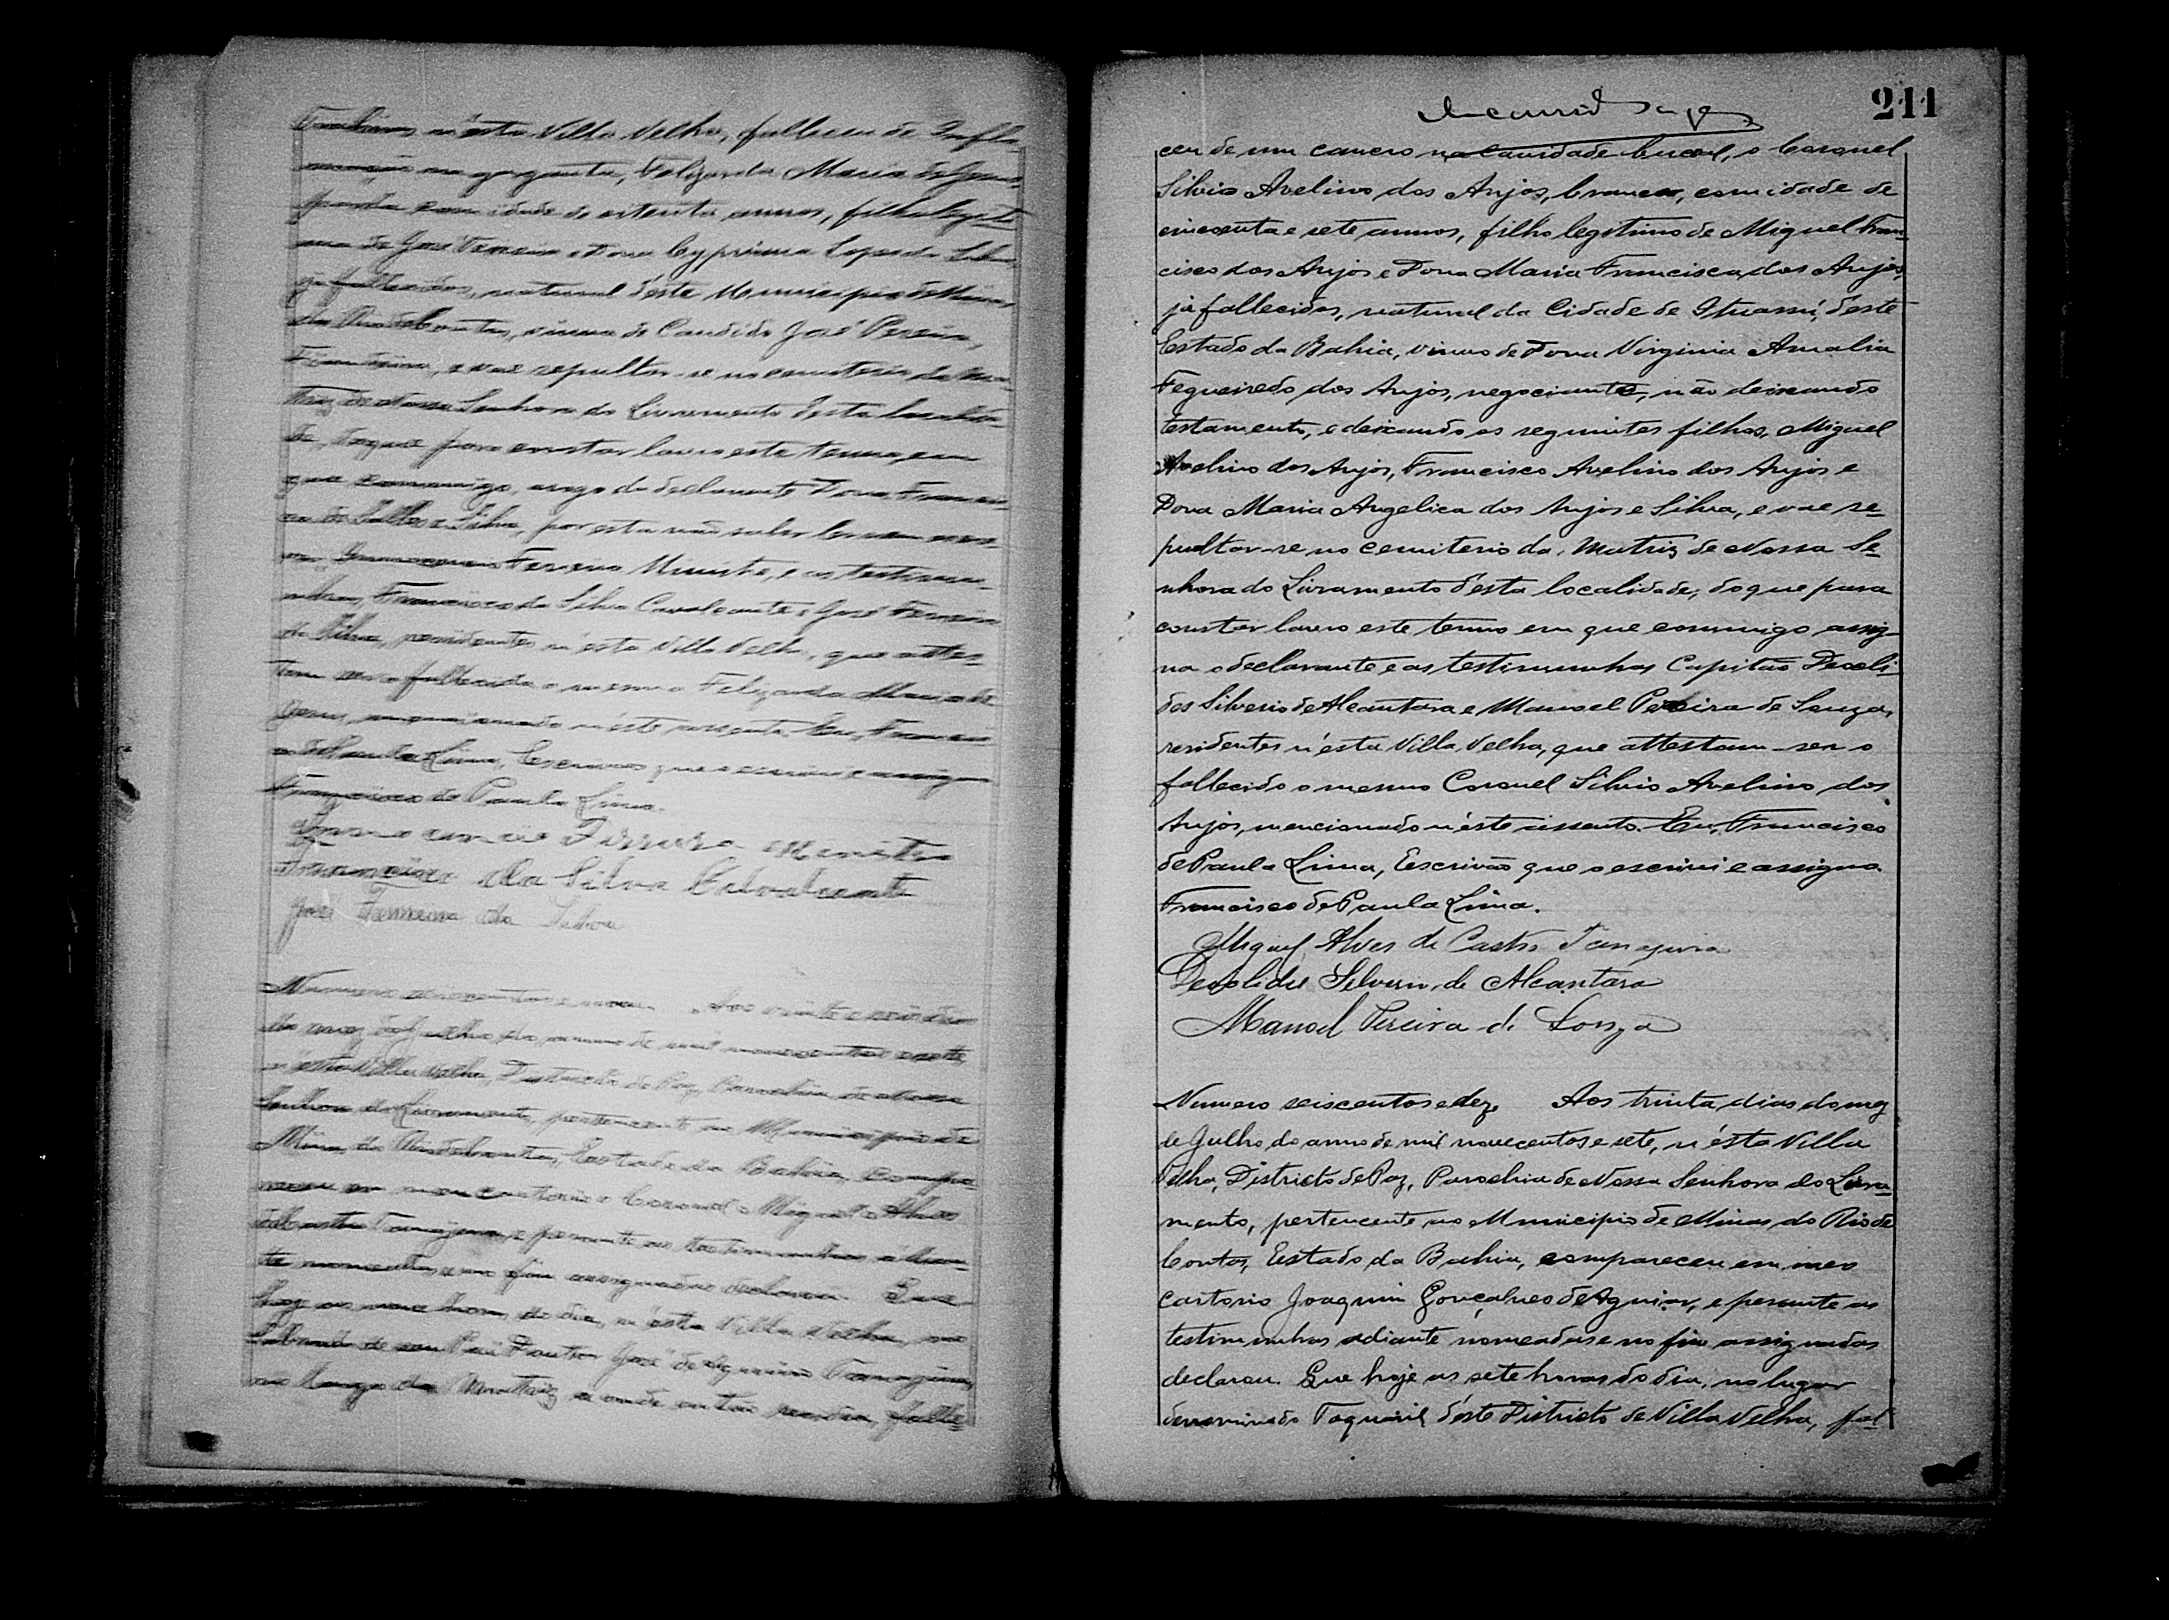 n'esta Villa Velha, falleceu de Infla-
na garganta, Felizarda Maria de
com idade de oitenta annos, filha legiti-
ma de José e Dona Cypriana Lopes da
já fallecidos, natural d'este Municipio de Minas
do Rio de Contas, viuva de Candido José Pereira,
e vae sepultar-se no cemiterio da Ma-
triz de Nossa Senhora do Livramento desta localida-
de, do que para constar lavro este termo, em
que commigo, a rogo da declarante Dona
Silva, por esta não saber ler nem escre-
e as testimu-
nhas, Francisco da Silva Cavalcante e José Ferreira
da Silva, residentes n'esta Villa Velha, que attes-
tam ser a fallecida a mesma Felizarda Maria de
mencionada n'este assento. Eu, Francis-
co de Paula Lima, Escrivão que o escrivi e assigno
Francisco de Paula Lima.
Francisco da Silva Cavalcante
José Ferreira da Silva
Numero seiscentos e nove. Aos vinte e
do mez de Julho do anno de mil novecentos e sete,
n'esta Villa Velha, Districto de Paz, Parochia de Nossa
Senhora do Livramento, pertencente ao Municipio de
Minas do Rio de Contas, Estado da Bahia, compa-
receu em meu cartorio o Coronel Miguel Alves
de Castro Tanajura, e perante as testimunhas adian-
te nomeadas, e no fim assignadas declarou. Que
hoje as nove horas do dia, n'esta Villa Velha, no
Sobrado de seu Pai Doutor José de Aquino Tanajura,
no Largo da Matriz, aonde então residia, falle-
211
ceu de um cancro na cavidade bucal, o Coronel
Silvio Avelino dos Anjos, branco, com idade de
cincoenta e sete annos, filho legitimo de Miguel Fran-
cisco dos Anjos e Dona Maria Francisca dos Anjos,
já fallecidos, natural da Cidade de Ituassú, d'este
Estado da Bahia, viuvo de Dona Virginia Amalia
Fegueiredo dos Anjos, negociante, não deixando
testamento, e deixando os seguintes filhos, Miguel
Avelino dos Anjos, Francisco Avelino dos Anjos e
Dona Maria Angelica dos Anjos e Silva, e vae se-
pultar-se no cemiterio da Matriz de Nossa Se-
nhora do Livramento d'esta localidade; do que para
constar lavro este termo em que commigo assig-
na o declarante e as testimunhas Capitão Deocli-
des Silverio de Alcantara e Manoel Pereira de Souza,
residentes n'esta Villa Velha, que attestam ser o
fallecido o mesmo Coronel Silvio Avelino dos
Anjos, mencionado n'este assento. Eu, Francisco
de Paula Lima, Escrivão que o escrivi e assigno.
Francisco de Paula Lima.
Miguel Alves de Castro Tanajura
Deoclides Silverio de Alcantara
Manoel Pereira de Souza
Numero seiscentos e dez. Aos trinta dias do mez
de Julho do anno de mil novecentos e sete, n'esta Villa
Velha, Districto de Paz, Parochia de Nossa Senhora do Livra-
mento, pertencente ao Municipio de Minas do Rio de
Contas, Estado da Bahia, compareceu em meu
cartorio Joaquim Gonçalves de Aguiar, e perante as
testimunhas adiante nomeadas e no fim assignadas
declarou. Que hoje as sete horas do dia, no lugar
denominado Taquaril d'este Districto de Villa Velha, fal-